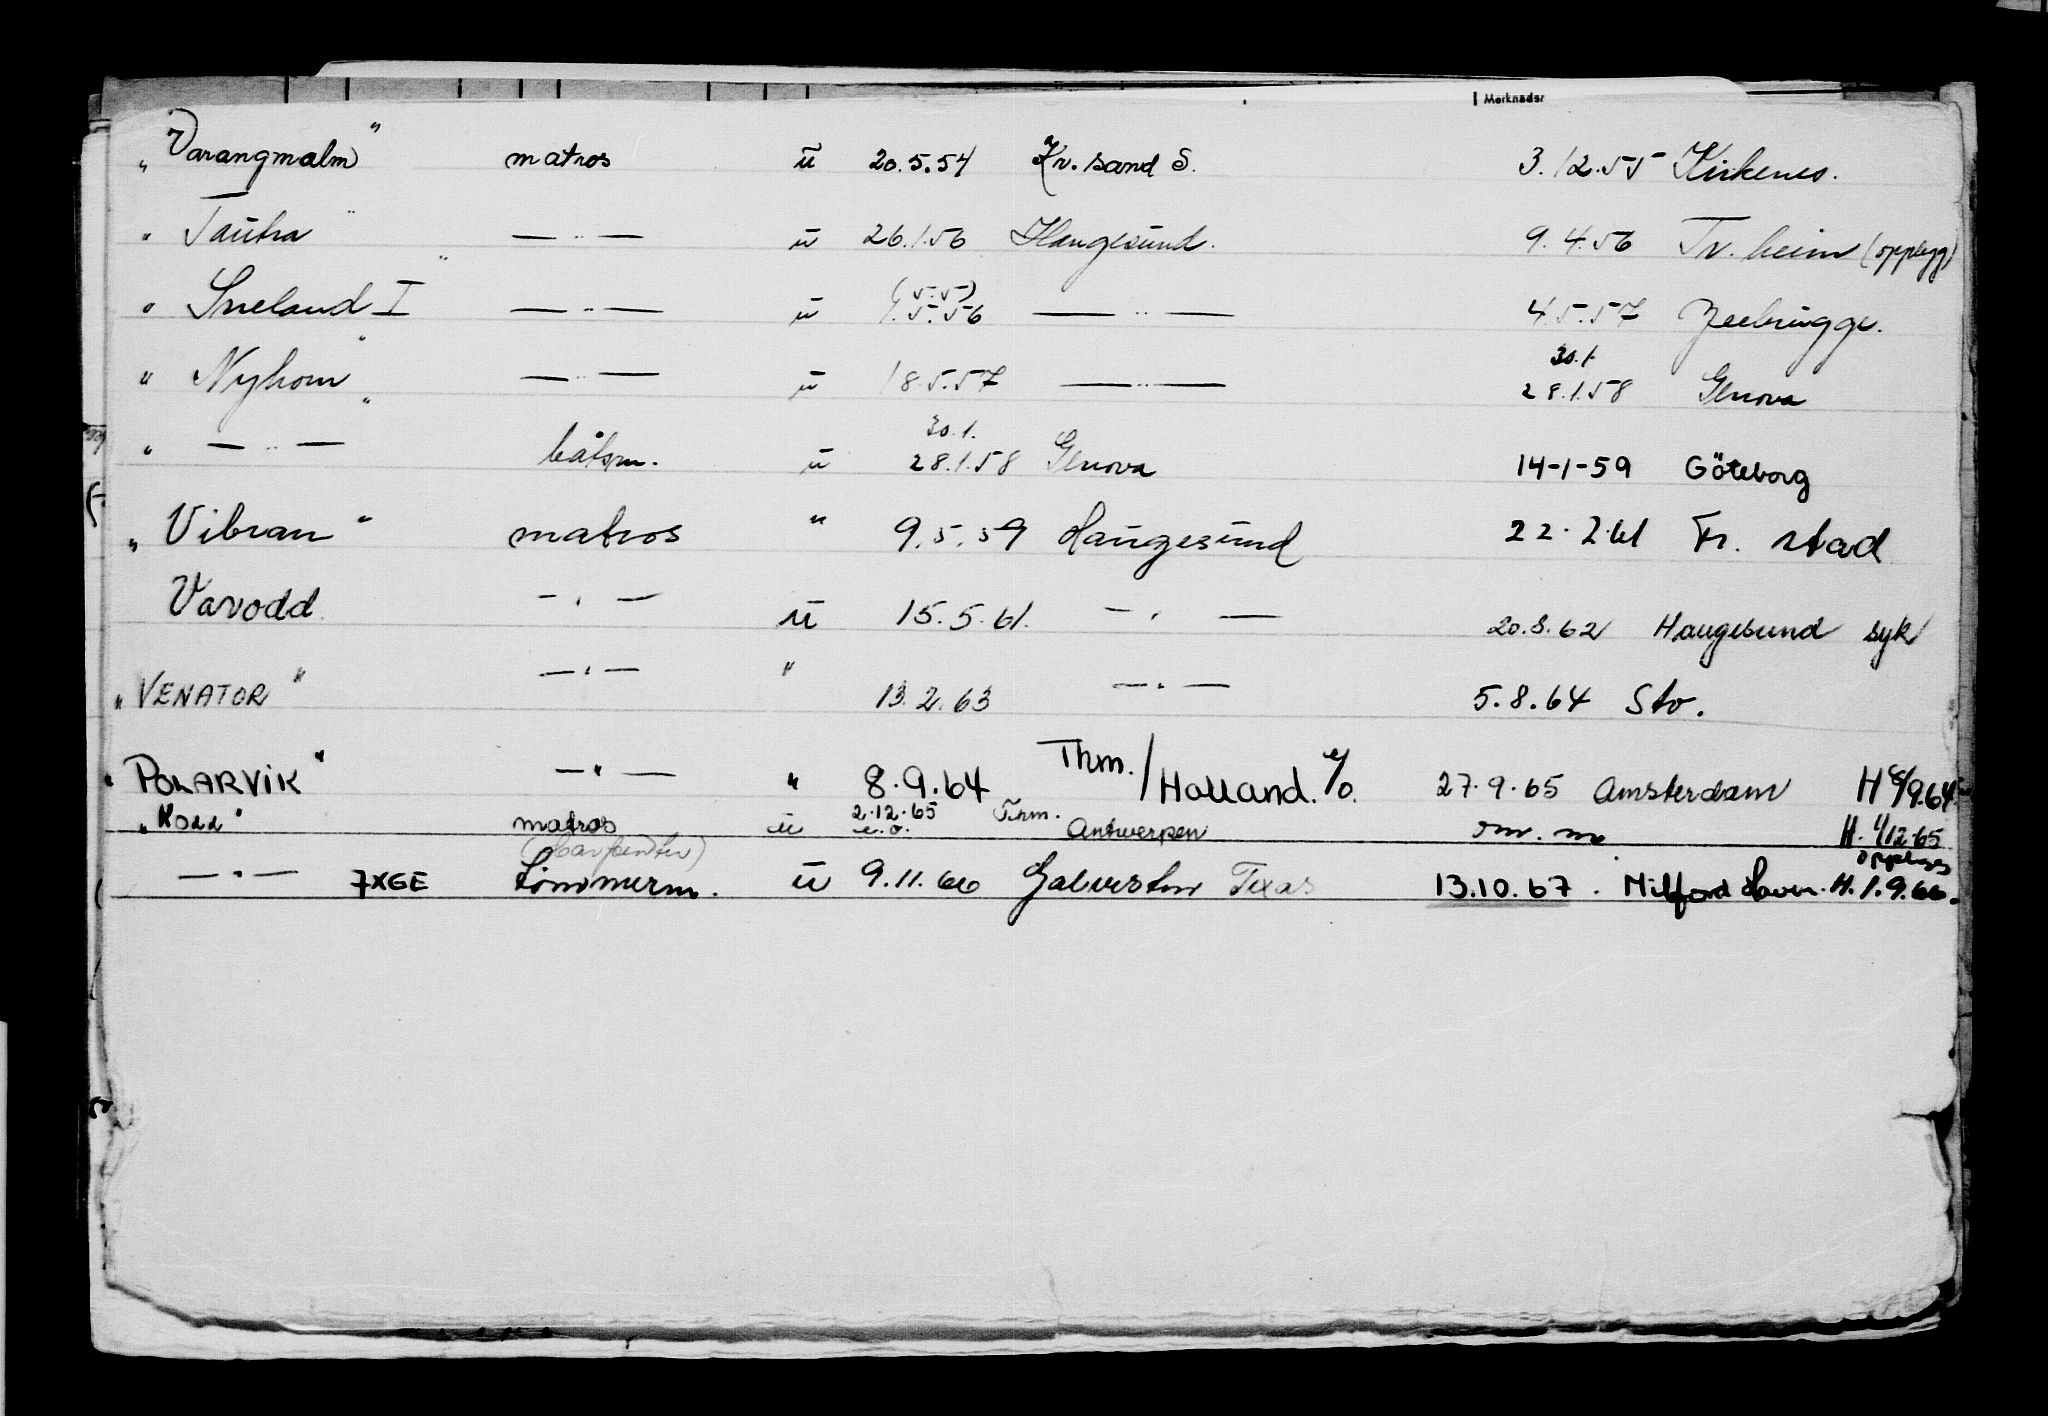 Merknader
"Varangmalm" matros u 20.5.54 Kr.sand S. 3.12.55 Kirkenes.
" Tautra " — " — u 26.1.56 Haugesund. 9.4.56 Tr.heim (opplegg)
" Sneland I " — " — u (5.5) 1.5.56 — " — 4.5.57 Zeebrügge.
" Nyhorn " — " — u 18.5.57 — " — 30.1. 28.1.58 Genova
" — " — båtsm. u 30.1. 28.1.58 Genova 14-1-59 Göteborg
" Vibran " matros " 9.5.59 Haugesund 22.2.61 Fr. stad
Varodd — " — u 15.5.61. — " — 20.8.62 Haugesund syk
" VENATOR " — " — " 13.2.63 — " — 5.8.64 Sto.
" POLARVIK " — " — " 8.9.64 Thm./Holland. e/o. 27.9.65 Amsterdam H 8/9.64
"Koll" matros u 2.12.65 e.o. Thm. Antwerpen H. 1/12.65
(Carpenter) opplegg
— " — 7XGE tömmerm. u 9.11.66 Galveston Texas 13.10.67. Milford Haven. H. 1.9.66.